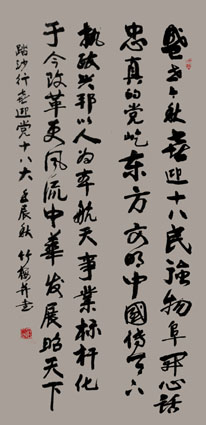 盛世今秋喜迎十八民強物阜開心話
忠真的党屹东方文明中國傳
執政兴邦以人为本航天事業标杆化
于今改革更风流中華发展昭天下
踏沙行喜迎党十八大壬辰秋竹梅并书